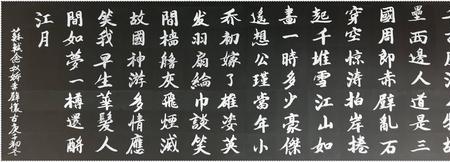 壘西邊人道是三
國周郎赤壁亂石
穿空惊涛拍岸捲
起千堆雪江山如
畫一時多少豪傑
遙想公瑾當年小
乔初嫁了雄姿英
发羽扇綸巾談笑
間檣艣灰飛煙滅
故國神游多情應
笑我早生華髮人
間如夢一樽還酹
江月
蘇軾念奴娇赤壁懷古庚初冬